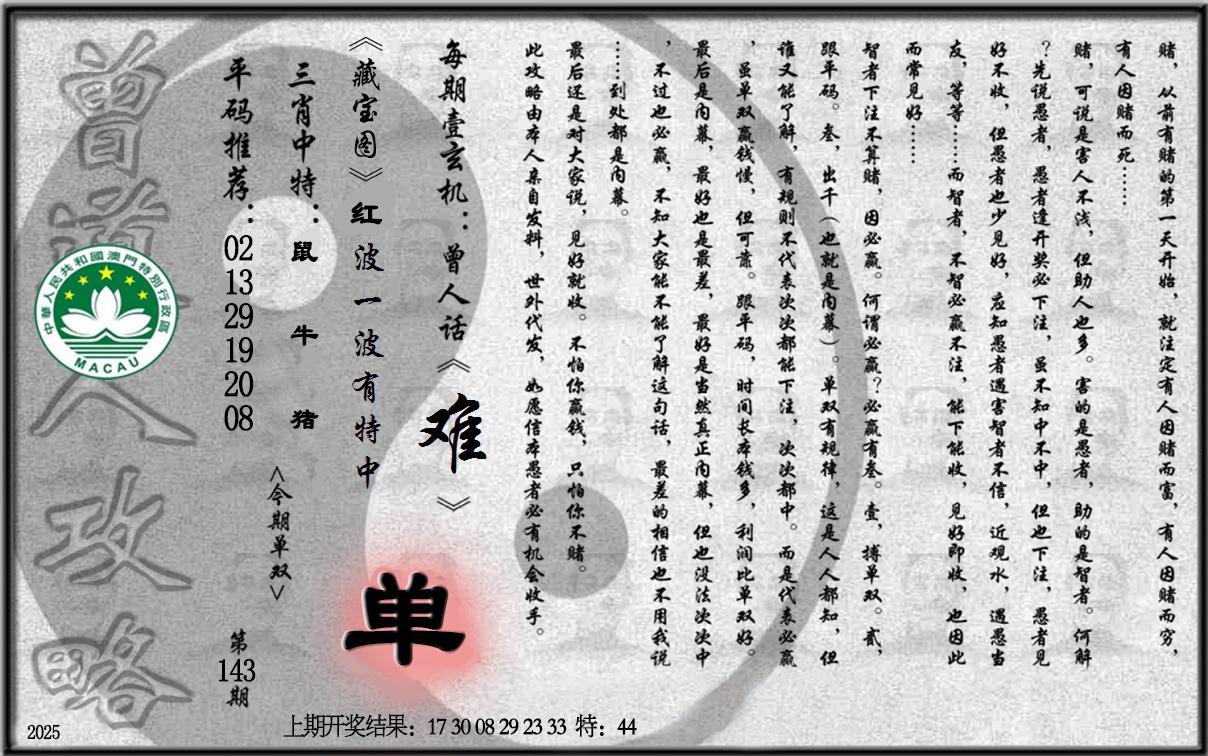 赌，从前有赌的第一天开始，就注定有人因赌而富，有人因赌而穷，
有人因赌而死……
赌，可说是害人不浅，但助人也多。害的是愚者，助的是智者。何解
？先说愚者，愚者逢开奖必下注，虽不知中不中，但也下注，愚者见
好不收，但愚者也少见好，应知愚者遇害智者不信，近观水，遇愚当
友，等等……而智者，不智必赢不注，能下能收，见好即收，也因此
而常见好……
智者下注不算赌，因必赢。何谓必赢？必赢有叁。壹，搏单双。贰，
跟平码。叁，出千（也就是内幕）。单双有规律，这是人人都知，但
谁又能了解，有规则不代表次次都能下注，次次都中。而是代表必赢
，虽单双赢钱慢，但可靠。跟平码，时间长本钱多，利润比单双好。
最后是内幕，最好也是最差，最好是当然真正内幕，但也没法次次中
，不过也必赢，不知大家能不能了解这句话，最差的相信也不用我说
……到处都是内幕。
最后还是对大家说，见好就收。不怕你赢钱，只怕你不赌。
此攻略由本人亲自发料，世外代发，如愿信本愚者必有机会收手。
每期壹玄机：曾人话《难》
《藏宝图》红波一波有特中
单
三肖中特：鼠牛猪
<今期单双>
平码推荐：02 13 29 19 20 08
第143期
曾道人攻略
中華人民共和國澳門特別行政區
MACAU
2025
上期开奖结果：17 30 08 29 23 33 特：44